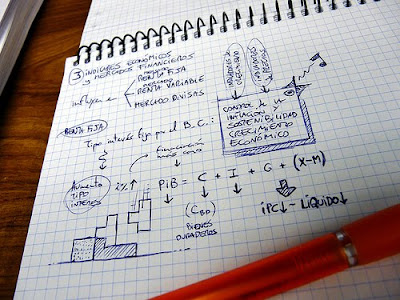 ③ INDICADORES ECONÓMICOS
Y MERCADOS FINANCIEROS
Influyen
MERCADO
RENTA FIJA
MERCADO
RENTA VARIABLE
MERCADO DIVISAS
INDICADORES DE
INDICADORES DE
PRECIOS
CONTROL de
INFLACIÓN Y
SOSTENIBILIDAD
CRECIMIENTO
ECONÓMICO
RENTA FIJA
Tipo interés fijo por el B.C.:
Financiación
más cara
Aumento
TIPO
INTERÉS
2%↑
PiB = C + I + G + (X-M)
(CBD)
BIENES
DURADEROS
iPC↓ - LÍQUIDO↓